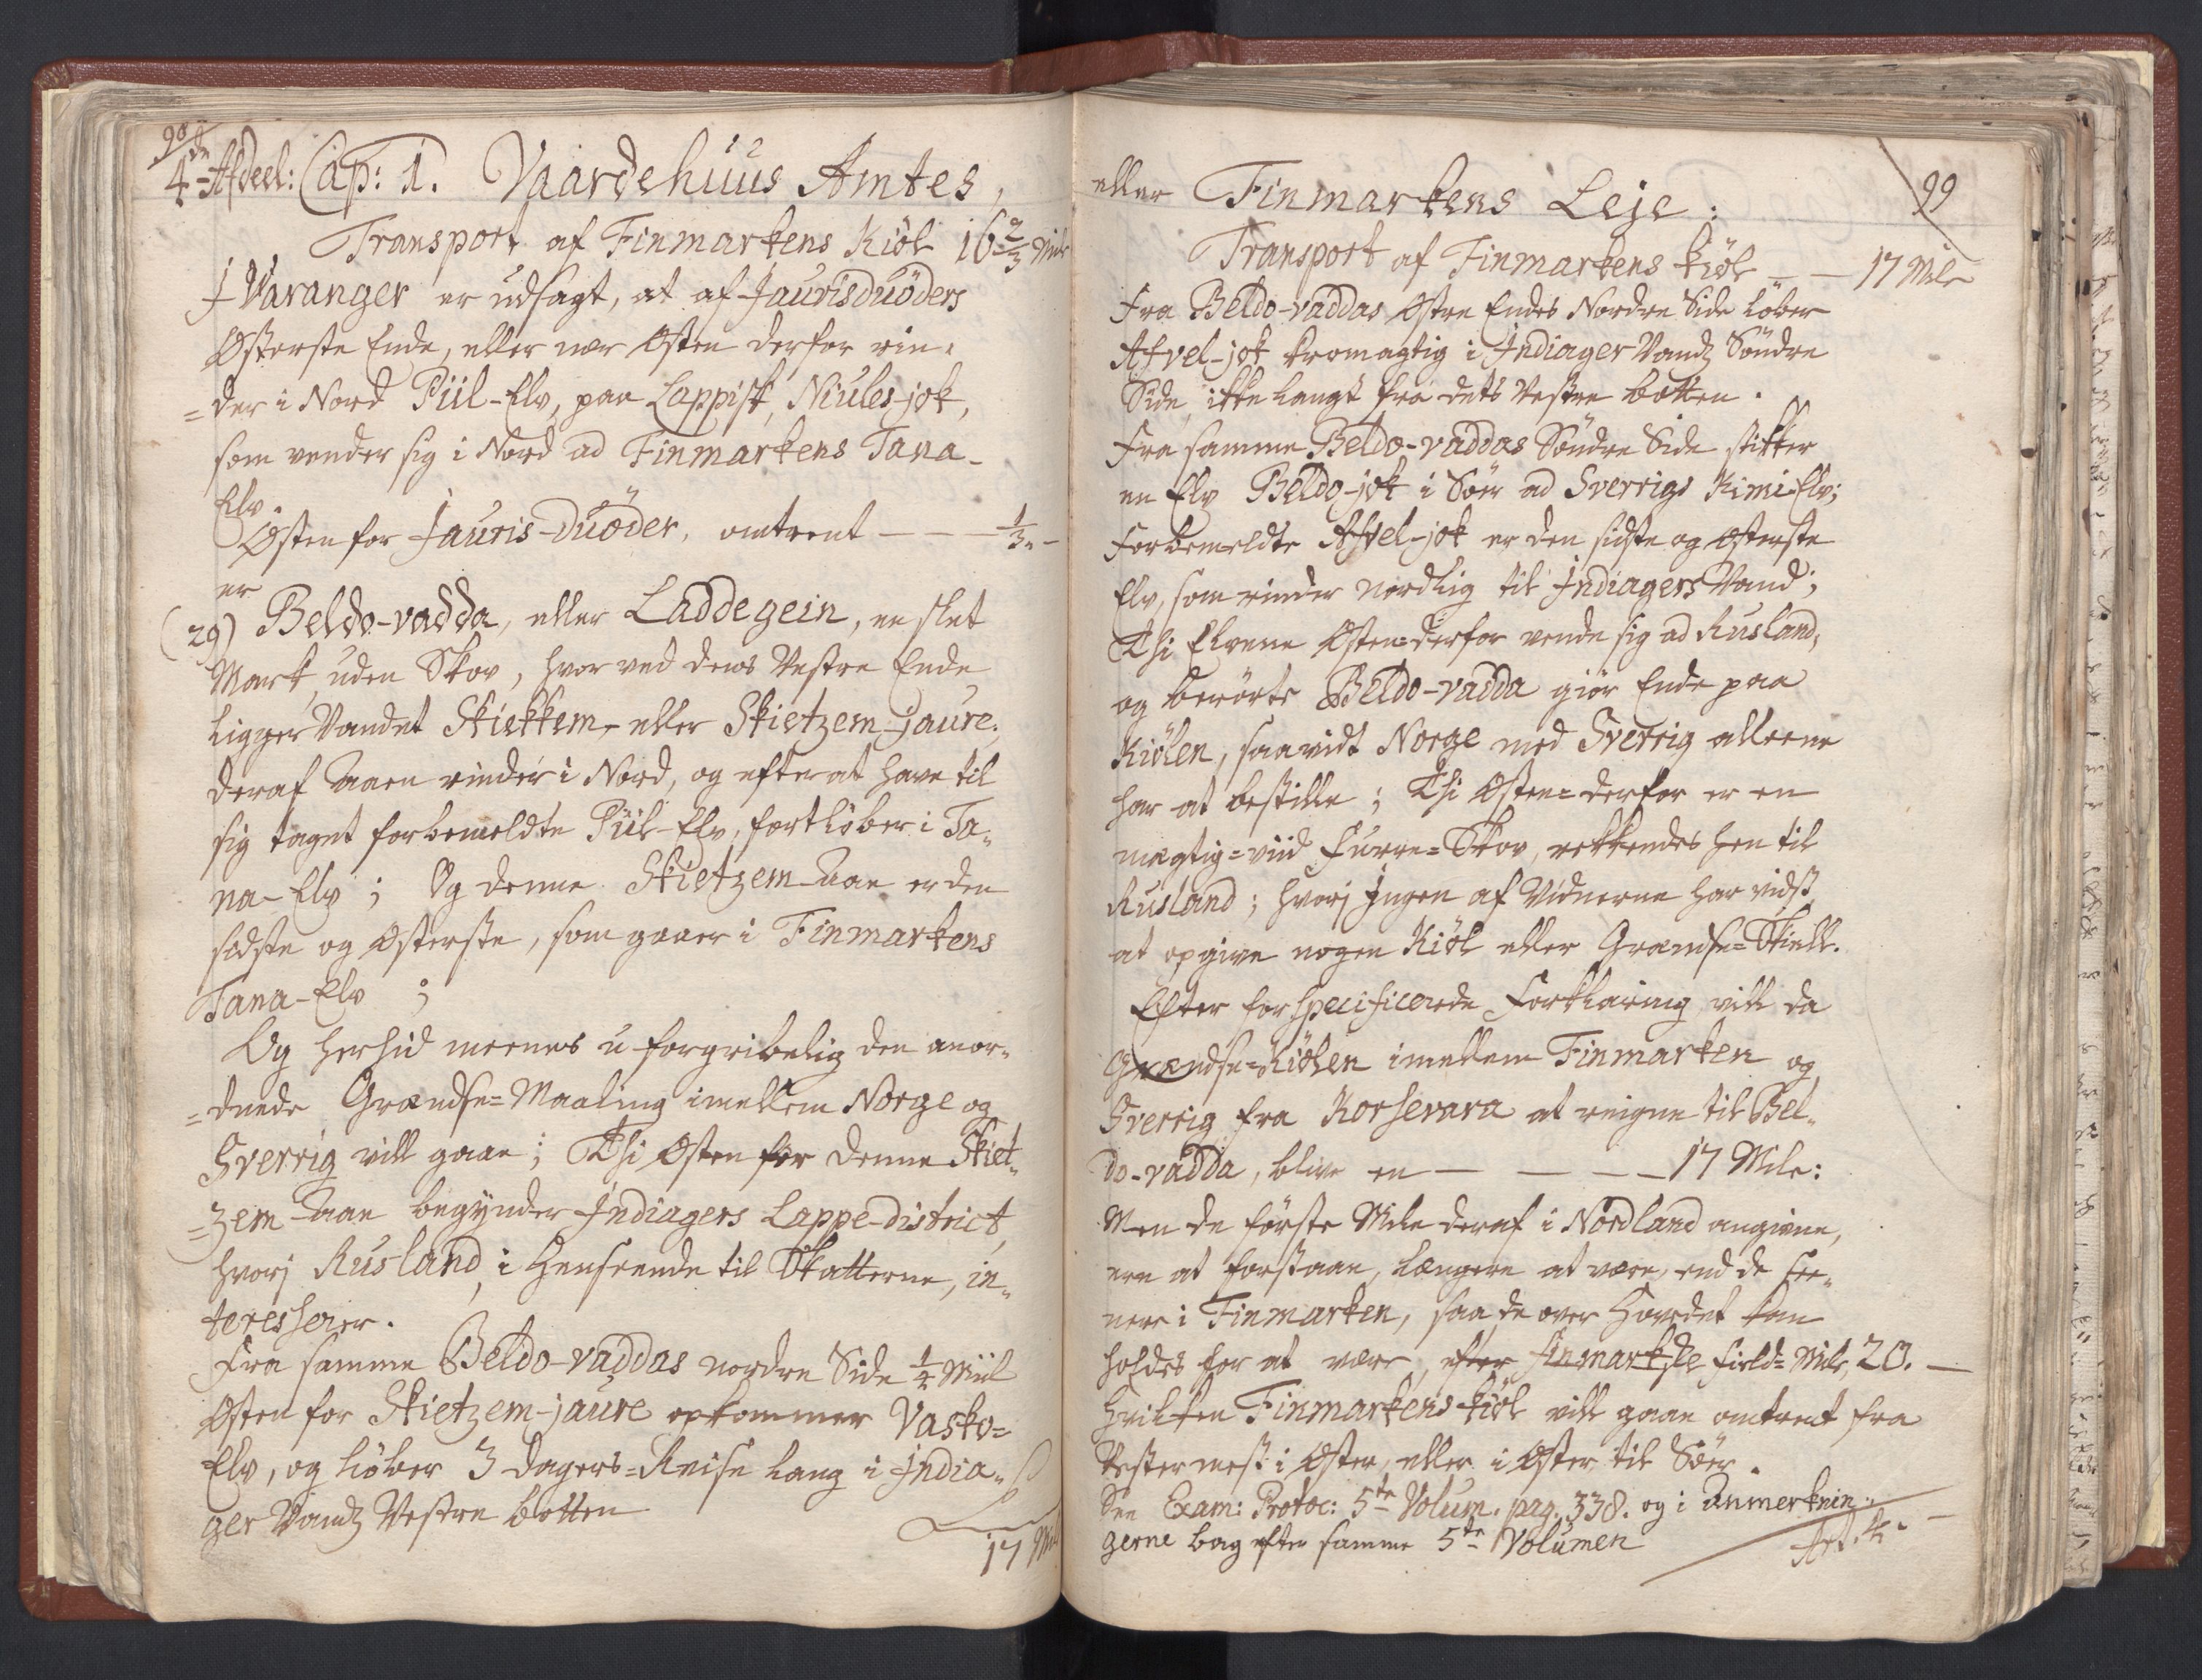 98
4de Afdeel: Cap: 1. Vaardehuus Amtes,
Transport af Finmarkens Kiøl 16 2/3 Mile
J Varanger er udsagt, at af Jaurisduöders
Østerste Ende, eller nær Østen derfor rin-
=der i Nord Piil-Elv, paa Lappisk, Niules-jok,
som vender sig i Nord ad Finmarkens Tana-
Elv.
Østen for Jauris-Duöder, omtrent - - - 1/3 -
er
(29) Beldo-vadda, eller Laddegein, en slet
Mark uden Skov, hvor ved dens Vestre Ende
ligger Vandet Skiekkem- eller Skietzem-jaure;
deraf Aaen rinder i Nord, og efter at have til
sig taget forbemeldte Piil-Elv, fortløber i Ta-
na-Elv; Og denne Skietzem-Aae er den
sidste og Østerste, som gaaer i Finmarkens
Tana-Elv;
Og herhid meenes uforgribelig den anor-
=dnede Grændse=Maaling imellem Norge og
Sverrig vill gaae; Thi Østen for denne Skiet-
=zem-Aae begynder Indiagers Lappe-District,
hvorj Rusland, i Henseende til Skatterne, in-
teresserer.
Fra samme Beldo-vaddas nordre Side 1/4 Miil
Østen for Skietzem-jaure opkommer Vasko=
Elv, og løber 3 Dagers=Reise lang i India-
ger Vandz Vestre botten
17 Mile
eller Finmarkens Leje: 99
Transport af Finmarkens Kiøl - - 17 Mile
Fra Beldo-vaddas Østre Endes Nordre Side løber
Afvel-jok kromagtig i Indiager Vandz Søndre
Side, ikke langt fra dets Vestre botten.
Fra samme Beldo-vaddas Søndre Side stikker
en Elv Beldo-jok i Sør ad Sverrigs Kimi-Elv;
Forbemeldte Afvel-jok er den sidste og Østerste
Elv, som rinder nordlig til Indiagers Vand;
Thi Elvene Østen=derfor vende sig ad Rusland,
og berørte Beldo-vadda giør Ende paa
Kiølen, saavidt Norge med Sverrig alleene
har at bestille; Thi Østen=derfor er en
mægtig=viid Furre=Skov, rekkendes hen til
Rusland; hvorj Ingen af Vidnerne har vidst
at opgive nogen Kiøl eller Grændse=Skiell.
Efter forspecificerede Forklaring vill da
Grændse=Kiølen imellem Finmarken og
Sverrig fra Korsevara at reigne til Bel-
do-vadda, blive en - - - - 17 Mile:
Men de første Mile deraf i Nordland angivne,
ere at forstaae, længere at være, end de See-
nere i Finmarken, saa de over Hovedet kan
holdes for at være, efter Finmarkske Field=Mile, 20. -
Hvilken Finmarkens Kiøl vill gaae omtrent fra
Vester mest i Øster, eller i Øster til Sør.
See Exam: Protoc: 5te Volum. pag. 338. og i Anmerknin-
gerne bag efter samme 5te Volumen Art. 4.